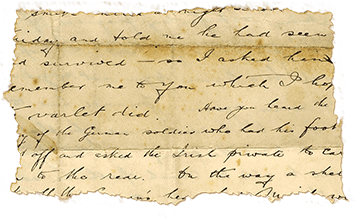 riday and told me he had seen
d survived — so I asked him
member me to you which I hop
varlet did. Have you heard the
y of the German soldier who had his foot
t off and asked the Irish private to car
to the rear. On the way a shel